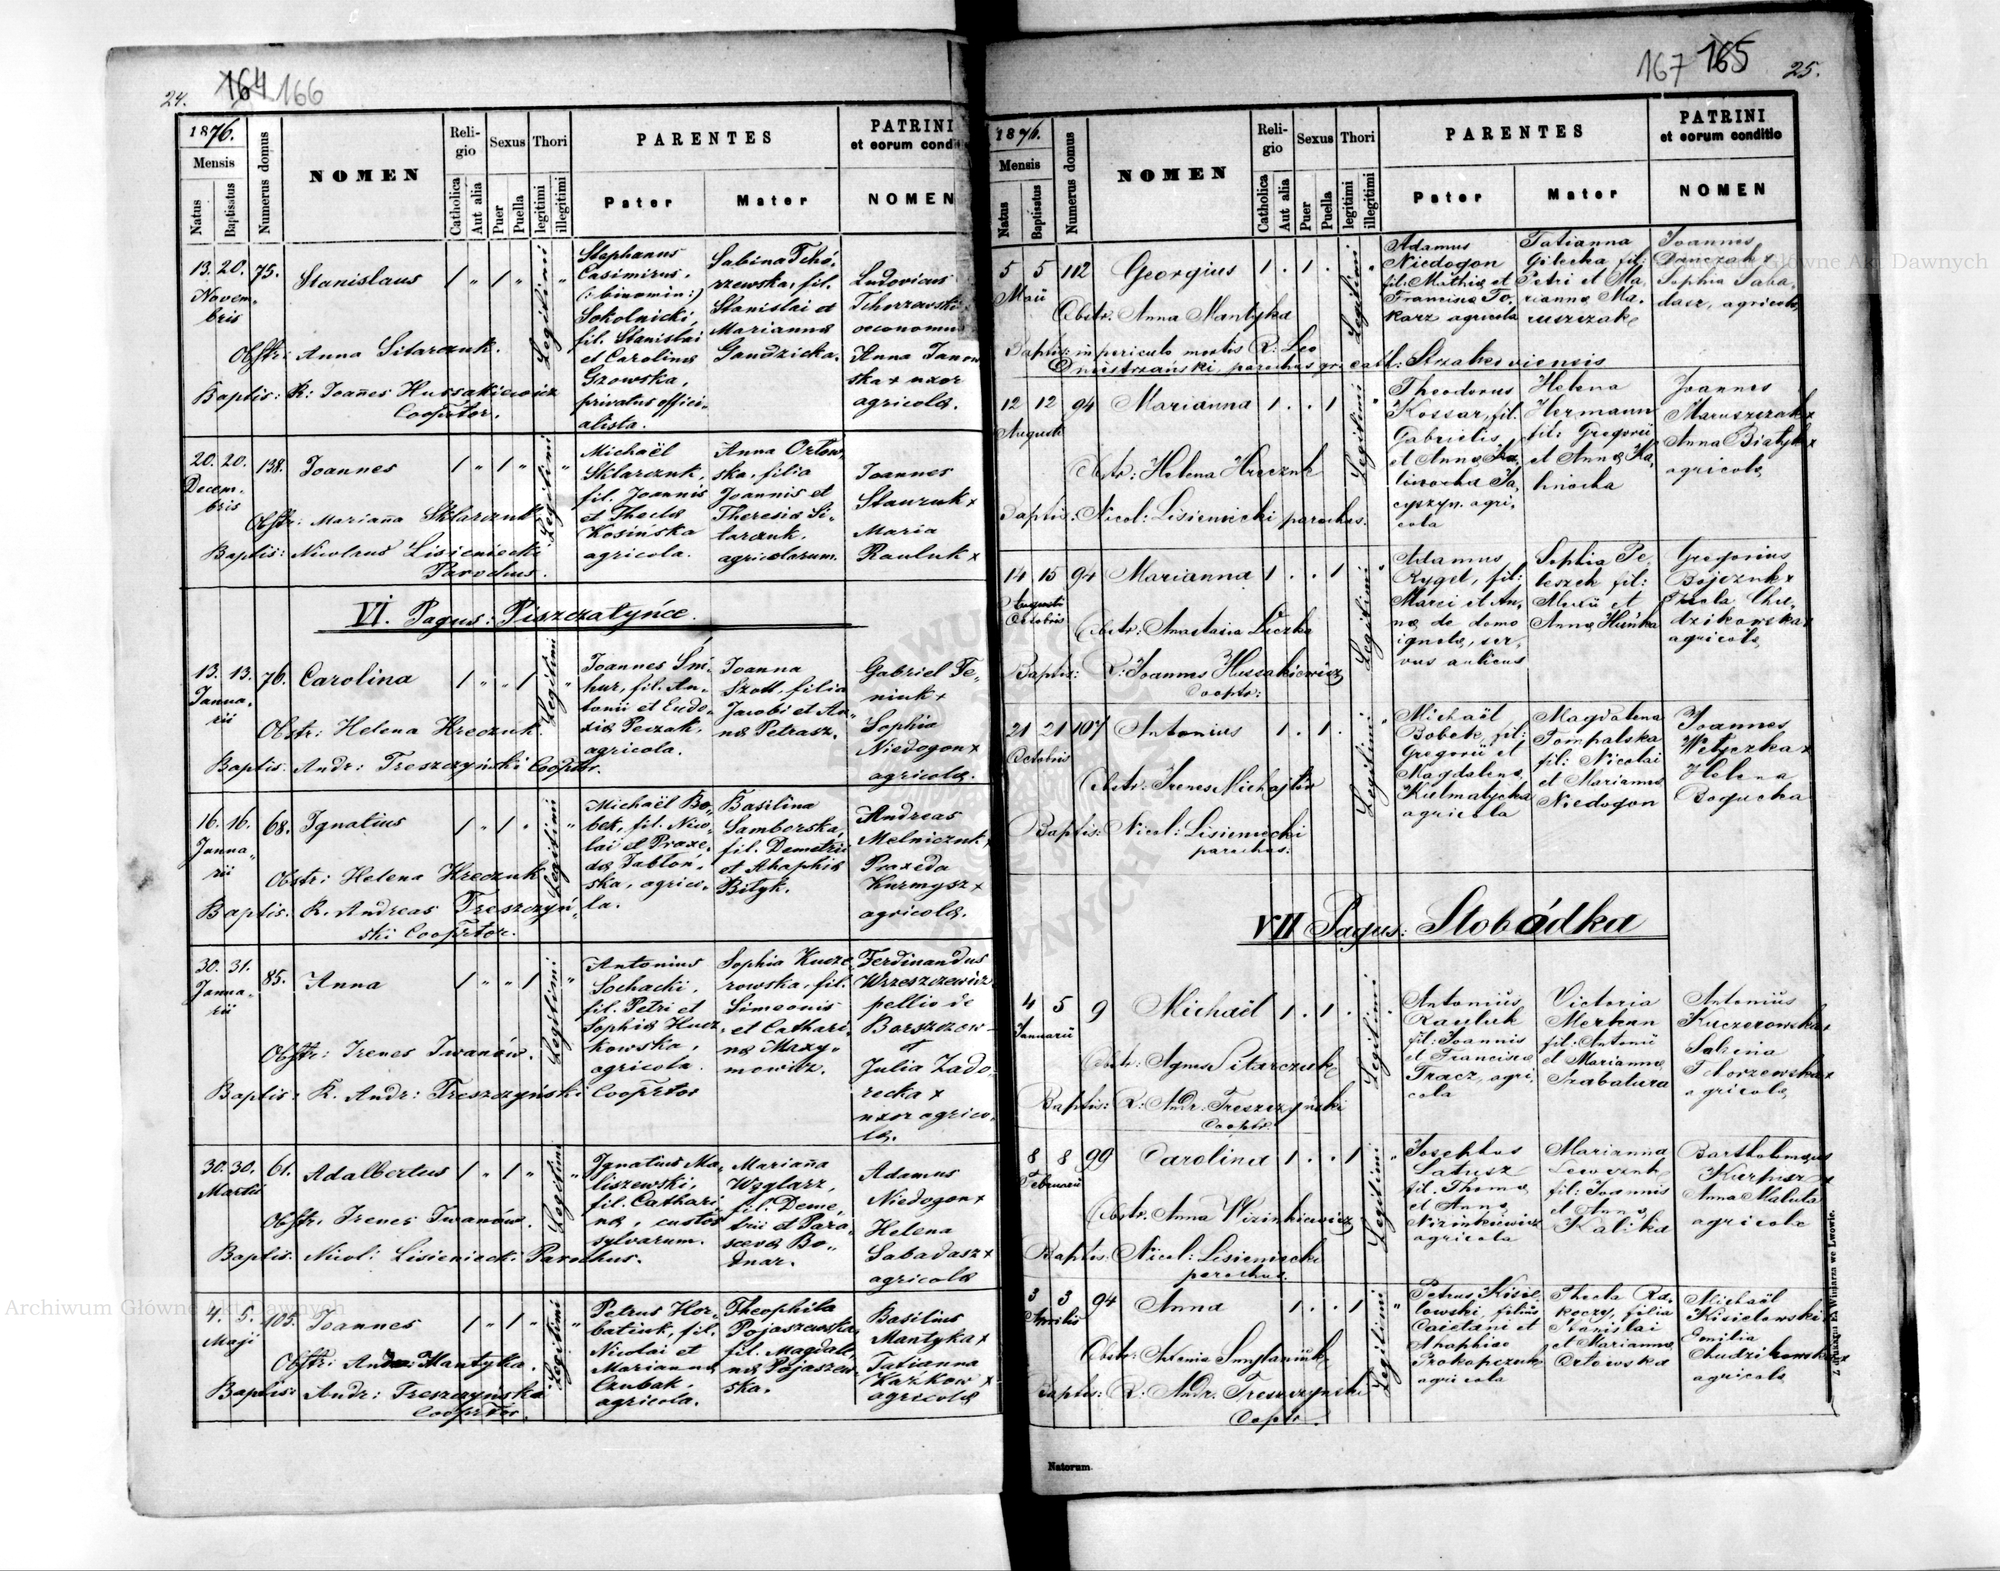 24. 164 166
1876.
Mensis
Natus
Baptisatus
Numerus domus
NOMEN
Religio
Catholica
Aut alia
Sexus
Puer
Puella
Thori
legitimi
illegitimi
PARENTES
Pater
Mater
PATRINI
et eorum condi
NOMEN
13. 20. 75. Stanislaus
Novem-
bris
Obstr: Anna Sitarczuk.
Baptis: R: Joañes Hussakiewicz
Cooprtor.
Legitimi
Stephanus
Casimirus,
(: binomin:)
Sokolnicki,
fil. Stanislai
et Carolina
Gzowska,
privatus offici-
alista.
Sabina Tchó-
rzewska, fil.
Stanislai et
Marianna
Gandzicka.
Ludovicus
Tchorzewski
oeconomus
Anna Janow
ska + uxor
agricola.
20. 20. 138. Joannes
Decem-
bris
Obstr: Marianna Sklarczuk
Baptis: Nicolaus Lisieniecki
Parochus.
Legitimi
Michaël
Sklarczuk,
fil. Joannis
et Thecla
Kosińska
agricola.
Anna Orlow-
ska, filia
Joannis et
Theresia Si-
tarczuk.
agricolarum.
Joannes
Stauruk +
Maria
Rauluk +
VI. Pagus: Piszczatyńce.
13. 13. 76. Carolina
Janua-
rii
Obstr: Helena Hreczuk.
Baptis: Andr: Treszczyński Cooprtor.
Legitimi
Joannes Smi-
hur, fil. An-
tonii et Eudo-
xia Peczak,
agricola.
Joanna
Szott, filia
Jacobi et An-
na Petrasz.
Gabriel Te-
niuk +
Sophia
Niedogon +
agricola.
16. 16. 68. Ignatius
Janua-
rii
Obstr: Helena Hreczuk
Baptis. R. Andreas Treszczyń-
ski Cooprtor.
Legitimi
Michaël Bo-
bek, fil. Nico-
lai et Praxe-
da Jabłoń-
ska, agrico-
la.
Basilina
Samborska,
fil. Demetrii
et Ahaphia
Bilyk.
Andreas
Melniczuk +
Praxeda
Kurmysz +
agricola.
30. 31. 85. Anna
Janua-
rii
Obstr: Irenes Iwanów.
Baptis: R. Andr: Treszczyński Cooprtor
Legitimi
Antonius
Sochacki,
fil. Petri et
Sophia Hucz-
kowska,
agricola.
Sophia Kucze-
rowska, fil.
Simeonis
et Cathari-
na Maxy-
mowicz.
Ferdinandus
Wrzeszczewicz
pellio de
Borszczow
et
Julia Zado-
recka +
uxor agrico-
la.
30. 30. 61. Adalbertus
Martii
Obstr. Irenes Iwanów.
Baptis. Nicol: Lisieniecki Parochus.
Legitimi
Ignatius Ma-
liszewski,
fil. Cathari-
na, custos
sylvarum.
Marianna
Węglarz,
fil. Deme-
trii et Para-
sceva Bo-
dnar.
Adamus
Niedogon +
Helena
Sabadasz +
agricola
4. 5. 105. Joannes
Maji
Obstr: Anna Mantyka.
Baptis: Andr: Treszczyński
Cooprtor.
Legitimi
Petrus Hor-
batiuk, fil.
Nicolai et
Marianna
Czubak.
agricola.
Theophila
Pojaszewska
fil. Magdale-
na Pojaszew-
ska.
Basilius
Mantyka +
Tatianna
Kazkow +
agricola
167 165 25.
1876.
Mensis
Natus
Baptisatus
Numerus domus
NOMEN
Religio
Catholica
Aut alia
Sexus
Puer
Puella
Thori
legitimi
illegitimi
PARENTES
Pater
Mater
PATRINI
et eorum conditio
NOMEN
5 5 112 Georgius
Maii
Obstr. Anna Mantyka
Baptis: in periculo mortis R: Leo
Onistrzański, parochus gr: cath: Strzałkoviensis
Legitimi
Adamus
Niedogon
fil: Mathia et
Francisca To-
karz agricola
Tatianna
Gilecka fil:
Petri et Ma-
rianna Ma-
ruszczak
Joannes
Danczak +
Sophia Saba-
dasz, agricola
12 12 94 Marianna
Augusti
Obstr: Helena Hreczuk
Baptis: Nicol: Lisieniecki parochus.
Legitimi
Theodorus
Kossar, fil.
Gabrielis
et Anna Ka-
linocha Ja-
cyszyn. agri-
cola
Helena
Hermann
fil: Gregorii
et Anna Ka-
linocha
Joannes
Maruszczak +
Anna Białyk +
agricola
14 15 94 Marianna
Augusti
Octobris
Obstr: Anastasia Liczka
Baptis: R: Joannes Hussakiewicz
Cooptr:
Legitimi
Adamus
Rygel, fil:
Marci et An-
na de domo
ignota, ser-
vus aulicus
Sophia Pe-
leszek fil:
Alexii et
Anna Huńka
Gregorius
Bojczuk +
Thecla Chu-
dzikowska +
agricola
21 21 107 Antonius
Octobris
Obstr: Irenes Michajlów
Baptis: Nicol: Lisieniecki
parochus.
Legitimi
Michaël
Bobek, fil:
Gregorii et
Magdalena
Kulmatycka
agricola
Magdalena
Tompalska
fil: Nicolai
et Marianna
Niedogon
Joannes
Weliczka +
Helena
Bogucka
VII Pagus: Slobódka
4 5 9 Michaël
Januarii
Obstr: Agnes Sitarczuk
Baptis: R: Andr. Treszczyński
Cooptr.
Legitimi
Antonius
Rauluk
fil: Joannis
et Francisca
Tracz, agri-
cola
Victoria
Merkun
fil: Antonii
et Marianna
Szabatura
Antonius
Kuczerowska +
Sabina
Tchorzewska +
agricola
8 8 99 Carolina
Februarii
Obstr. Anna Nizinkiewicz
Baptis. Nicol: Lisieniecki
parochus.
Legitimi
Josephus
Latusz
fil. Thoma
et Anna
Nizinkiewicz
agricola
Marianna
Lewczuk
fil: Joannis
et Anna
Kalika
Bartholomaeus
Karpisz +
Anna Maluta
agricola
3 3 94 Anna
Aprilis
Obstr: Antonia Smytaniuk
Baptis: R: Andr. Treszczynski
Coptr.
Legitimi
Petrus Kisie-
lowski, filius
Caietani et
Ahaphiae
Prokopczuk
agricola
Thecla Ra-
koczy, filia
Stanislai
et Marianna
Orłowska
Michaël
Kisielowski
Emilia
Chudzikowska +
agricola
Natorum.
Z drukarni E. Winiarza we Lwowie.
Archiwum Główne Akt Dawnych
Archiwum Główne Akt Dawnych